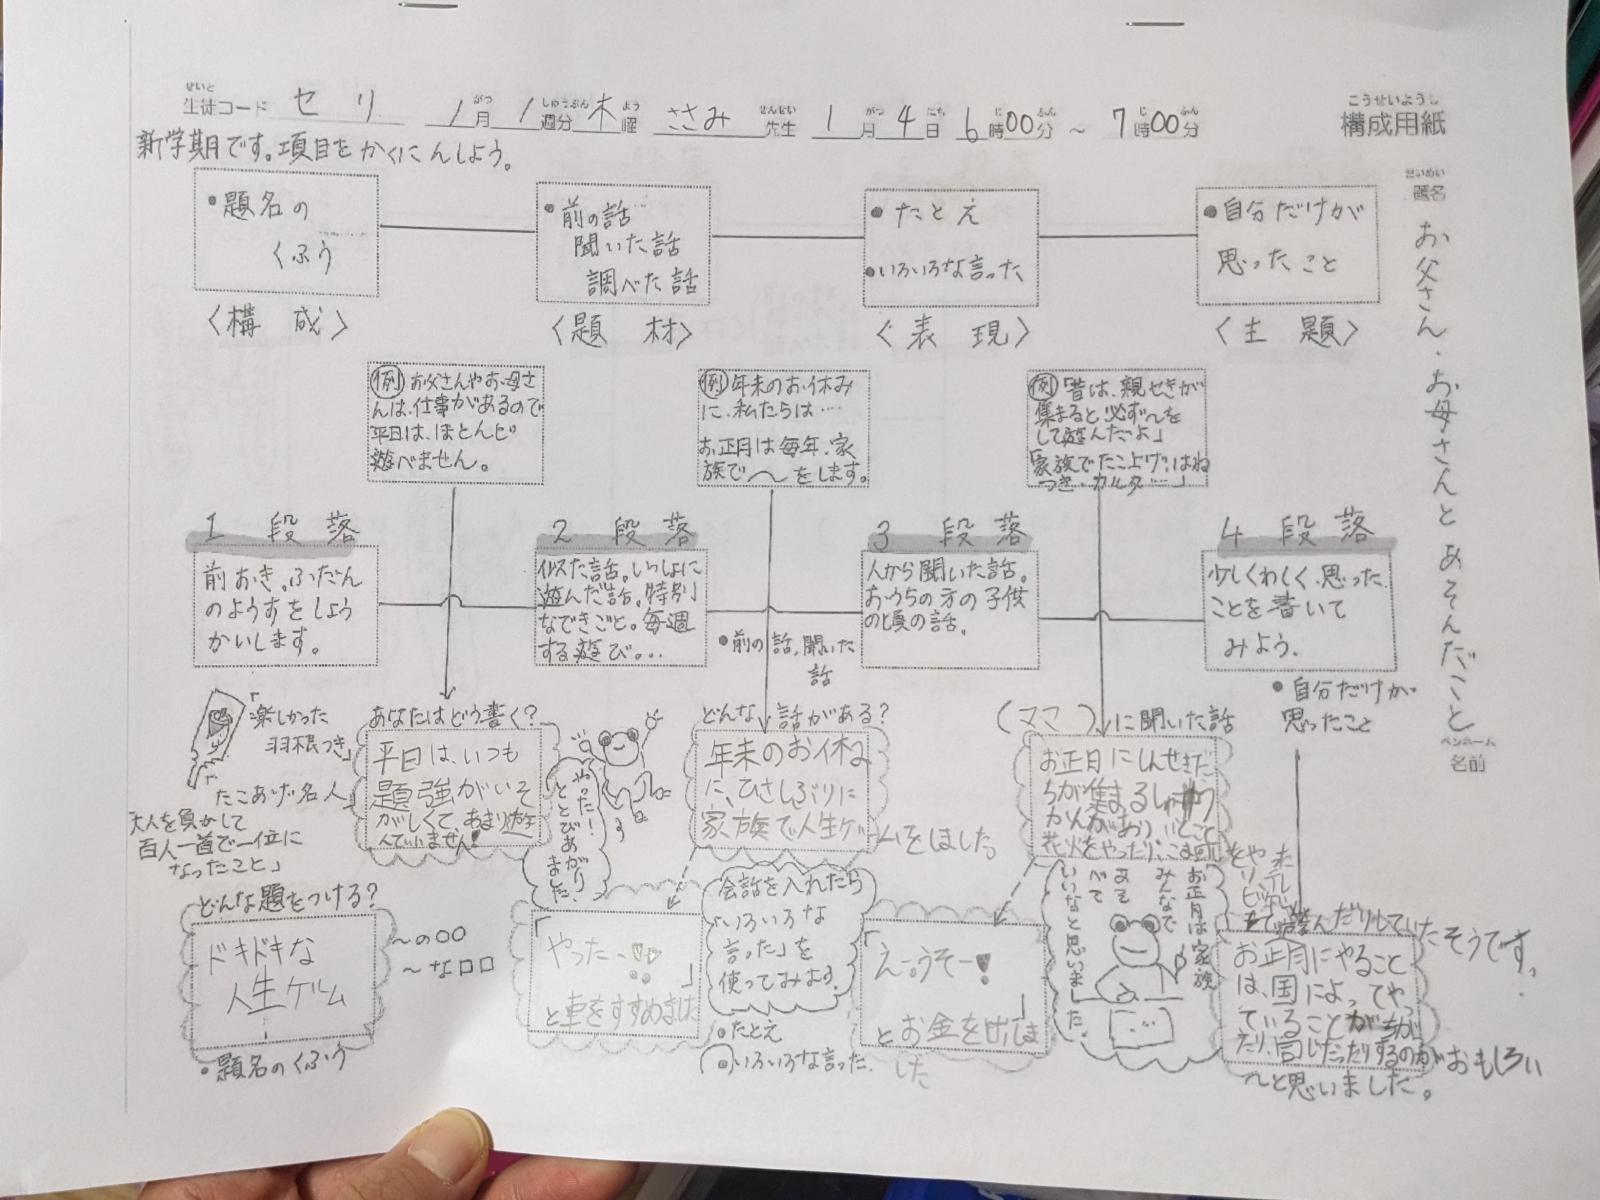 せいと
生徒コード セリ 1月 1週分 木曜 ささみ 先生 1月4日 6時00分 ~ 7時00分
こうせいようし
構成用紙
新学期です。項目をかくにんしよう。
だいめい
題名
お父さん・お母さんとあそんだこと
ペンネーム
名前
・題名の
くふう
〈構 成〉
・前の話
聞いた話
調べた話
〈題 材〉
・たとえ
・いろいろな言った
〈表 現〉
・自分だけが
思ったこと
〈主 題〉
例 お父さんやお母さ
んは、仕事があるので
平日は、ほとんど
遊べません。
例 年末のお休み
に、私たらは…
お正月は毎年、家
族で〜をします。
例 「昔は、親せきが
集まると必ず〜を
して遊んだよ」
「家族でたこ上げ・はね
つき・カルタ…」
1 段 落
前おき。ふだん
のようすをしょう
かいします。
2 段 落
似た話。いっしょに
遊んだ話。特別
なできごと。毎週
する遊び…
・前の話、聞いた
話
3 段 落
人から聞いた話。
おうちの方の子供
の頃の話。
4 段 落
少しくわしく、思った
ことを書いて
みよう。
・自分だけが
思ったこと
「楽しかった
羽根つき」
「たこあげ名人」
大人を負かして
百人一首で一位に
なったこと」
どんな題をつける?
ドキドキな
人生ゲーム
・題名のくふう
〜の○○
〜な□□
あなたはどう書く?
平日は、いつも
強がいそ
がしくて、あまり遊
んでいません!
やった!
ととびあがり
ました。
どんな話がある?
年末のお休み
に、ひさしぶりに
家族で人生ゲームをしました。
「やったー!!」
と車をすすめました
会話を入れたら
「いろいろな
言った」を
使ってみよう。
・たとえ
・いろいろな言った
「えーうそー!」
とお金を出しま
した
(ママ)に聞いた話
お正月にしんせきた
ちが集まるしゅう
かんがあり、いとこと
花火をやったり、こま回しをやったり、
て遊んだりしていたそうです。
お正月は家族
みんなで
あそ
べて
いいなと思いました。
お正月にやること
は、国によってやっ
ていることがちが
たり、同じだったりするのがおもしろい
〜と思いました。